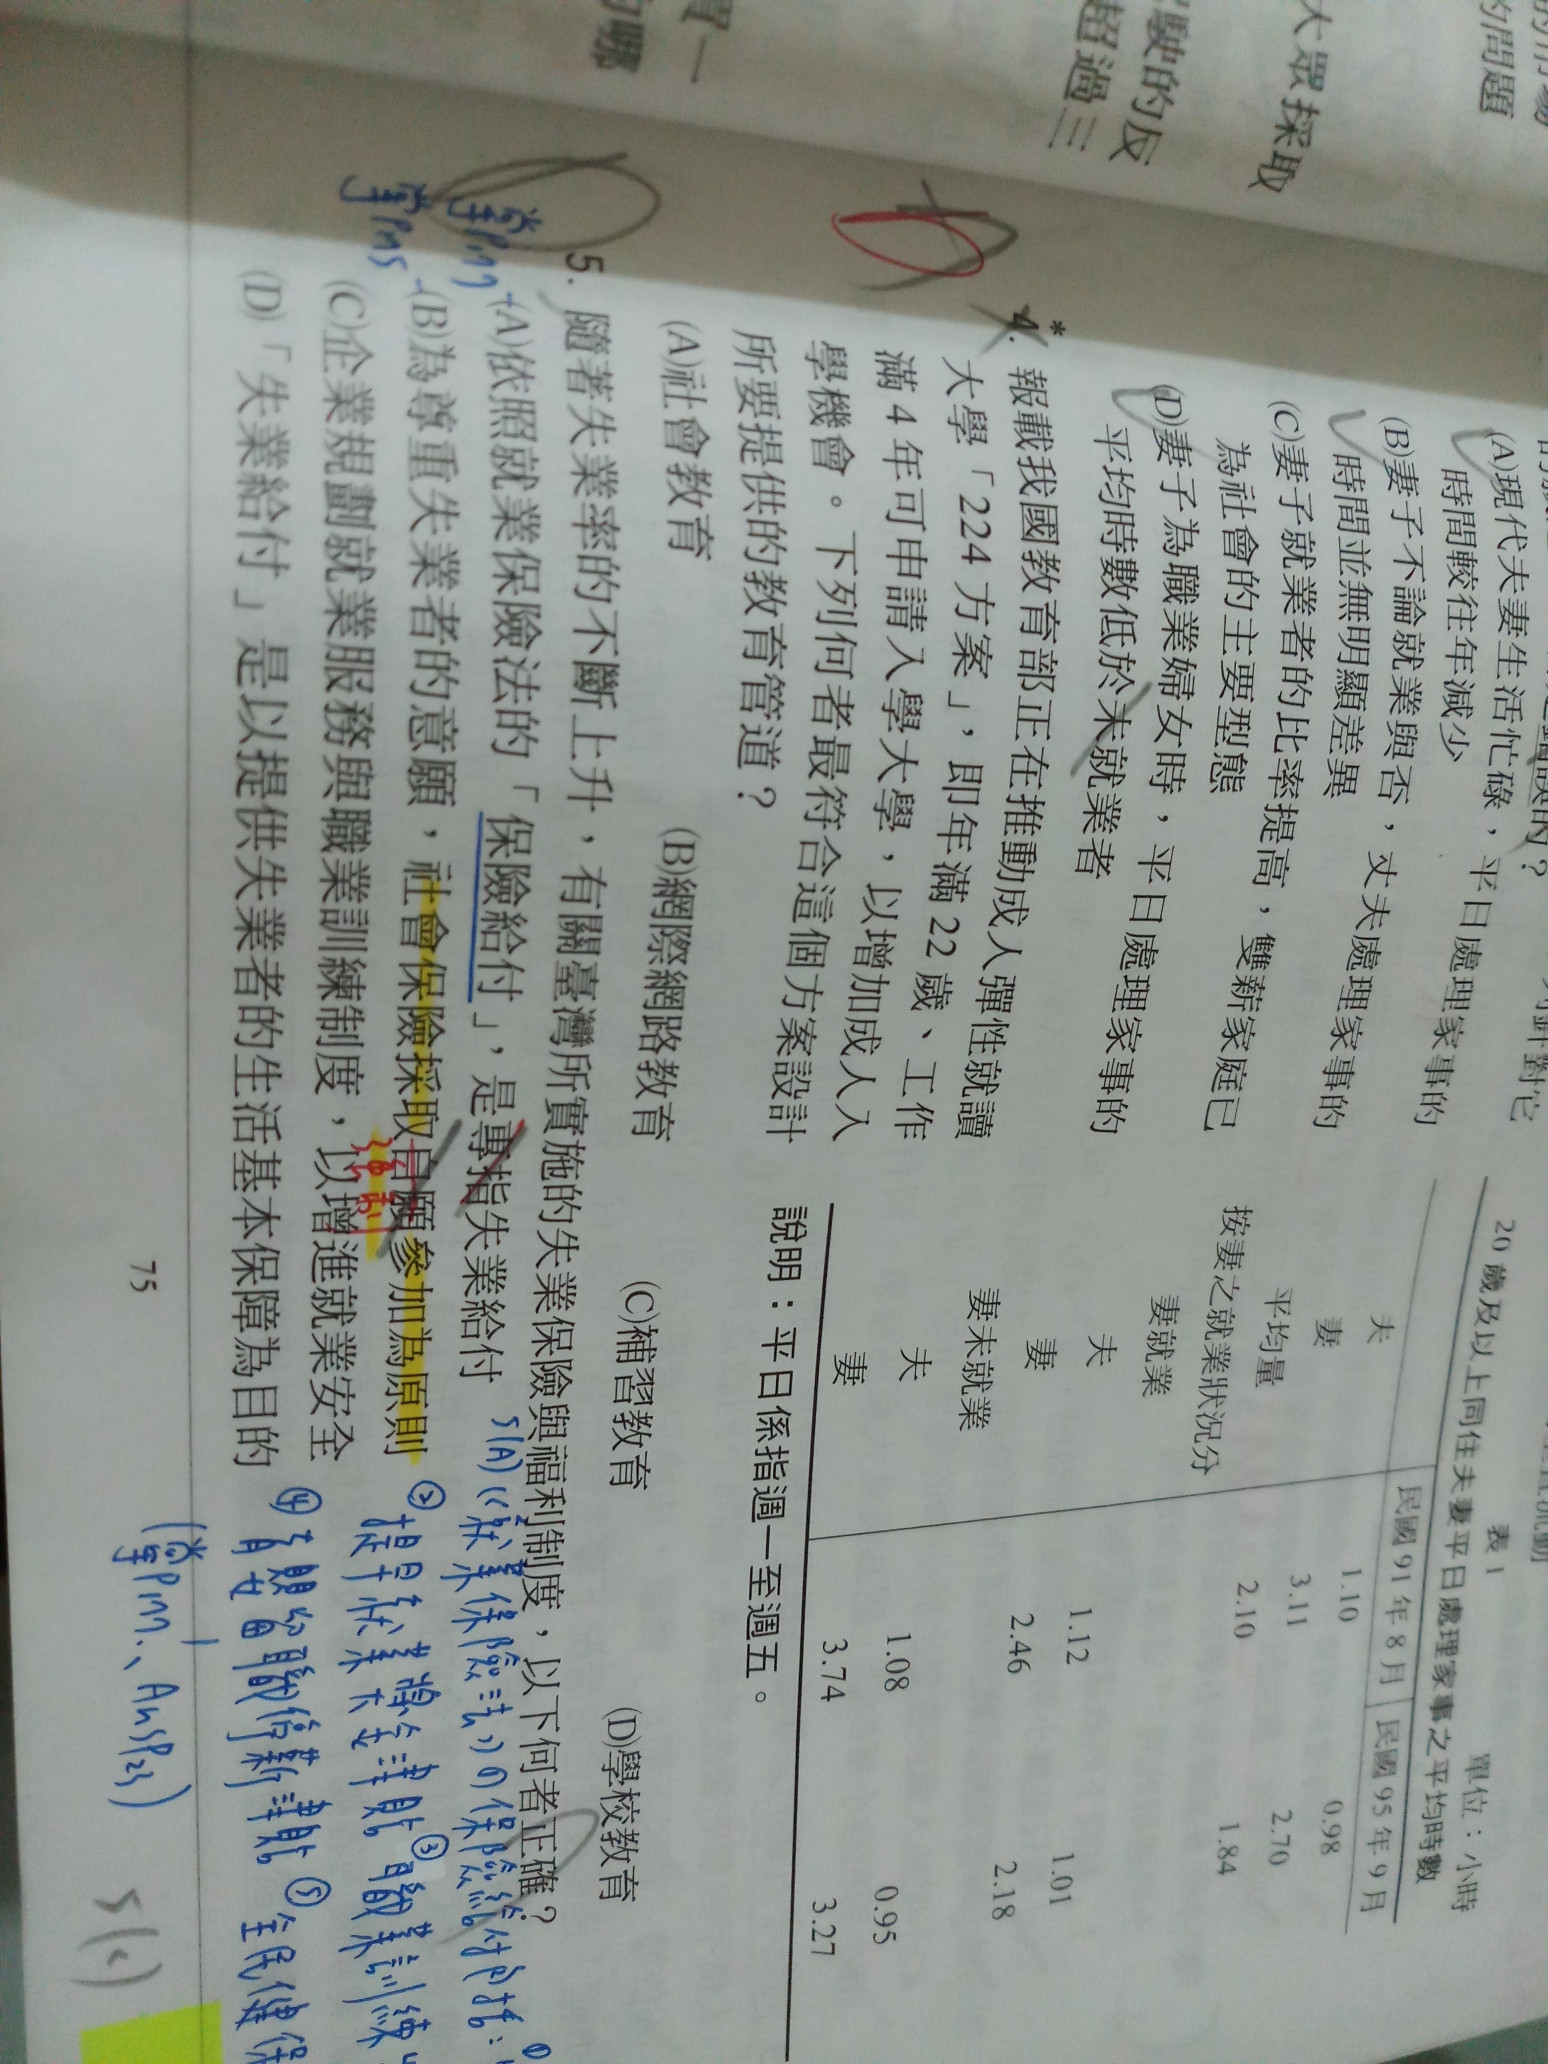 的問題
大眾採取
駛的反
超過三
買一
的哪
(A)現代夫妻生活忙碌，平日處理家事的
時間較往年減少
(B)妻子不論就業與否，丈夫處理家事的
時間並無明顯差異
(C)妻子就業者的比率提高，雙薪家庭已
為社會的主要型態
(D)妻子為職業婦女時，平日處理家事的
平均時數低於未就業者
表1
單位：小時
20歲及以上同住夫妻平日處理家事之平均時數
民國91年8月 民國95年9月
夫 1.10 0.98
妻 3.11 2.70
平均量 2.10 1.84
按妻之就業狀況分
妻就業
夫 1.12 1.01
妻 2.46 2.18
妻未就業
夫 1.08 0.95
妻 3.74 3.27
說明：平日係指週一至週五。
*4. 報載我國教育部正在推動成人彈性就讀
大學「224方案」，即年滿22歲、工作
滿4年可申請入學大學，以增加成人入
學機會。下列何者最符合這個方案設計
所要提供的教育管道？
(A)社會教育 (B)網際網路教育 (C)補習教育 (D)學校教育
5. 隨著失業率的不斷上升，有關臺灣所實施的失業保險與福利制度，以下何者正確？
(A)依照就業保險法的「保險給付」，是專指失業給付
(B)為尊重失業者的意願，社會保險採取自願參加為原則
強制
(C)企業規劃就業服務與職業訓練制度，以增進就業安全
(D)「失業給付」是以提供失業者的生活基本保障為目的
5(A)《就業保險法》的保險給付包括：①
②提早就業獎金津貼③職業訓練
④育嬰留職停薪津貼⑤全民健保
75
5(C)